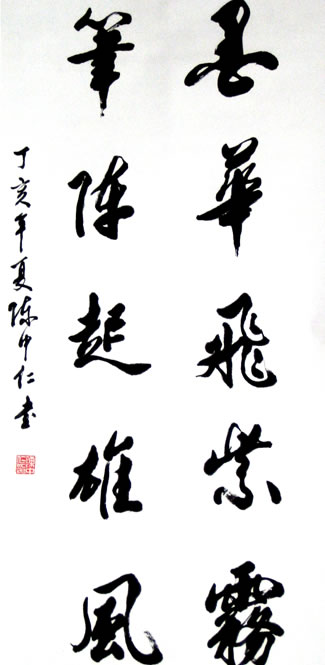 墨華飛紫霧
筆陣起雄風
丁亥年夏陈中仁书